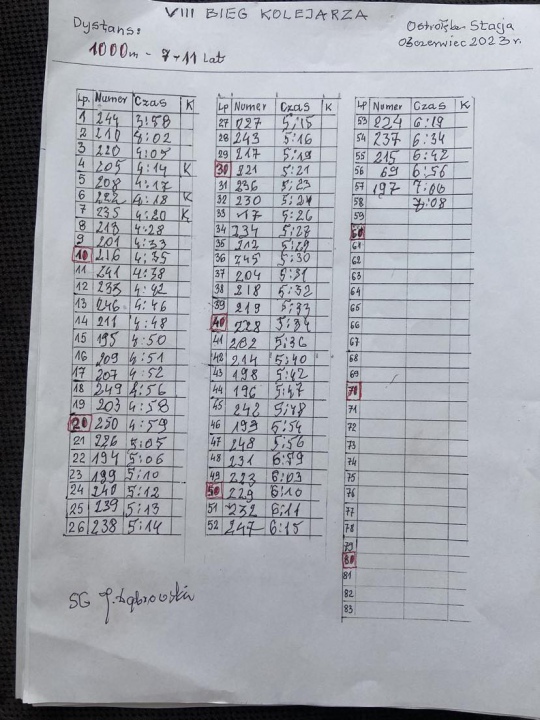 VIII BIEG KOLEJARZA
Dystans:
1000m - 7-11 Lat
Ostrołęka Stacja
03 czerwiec 2023 r.
Lp. Numer Czas K
1 244 3:58
2 210 4:02
3 220 4:05
4 205 4:14 K
5 208 4:17
6 222 4:18 K
7 235 4:20 K
8 213 4:28
9 201 4:33
10 216 4:35
11 241 4:38
12 233 4:42
13 246 4:46
14 211 4:48
15 195 4:50
16 209 4:51
17 207 4:52
18 249 4:56
19 203 4:58
20 250 4:59
21 226 5:05
22 194 5:06
23 5:10
24 240 5:12
25 239 5:13
26 238 5:14
Lp Numer Czas K
27 227 5:15
28 243 5:16
29 217 5:19
30 221 5:21
31 236 5:23
32 230 5:24
33 5:26
34 234 5:27
35 212 5:29
36 245 5:30
37 204 5:31
38 218 5:32
39 219 5:33
40 228 5:34
41 202 5:36
42 214 5:40
43 198 5:42
44 196 5:47
45 242 5:48
46 193 5:54
47 248 5:56
48 231
49 223 6:03
50 229 6:10
51 232 6:11
52 247 6:15
Lp Numer Czas K
53 224 6:19
54 237 6:34
55 215 6:42
56 69 6:56
57 197 7:06
58 7:08
59
60
61
62
63
64
65
66
67
68
69
70
71
72
73
74
75
76
77
78
79
80
81
82
83
SG J. Dąbrowski